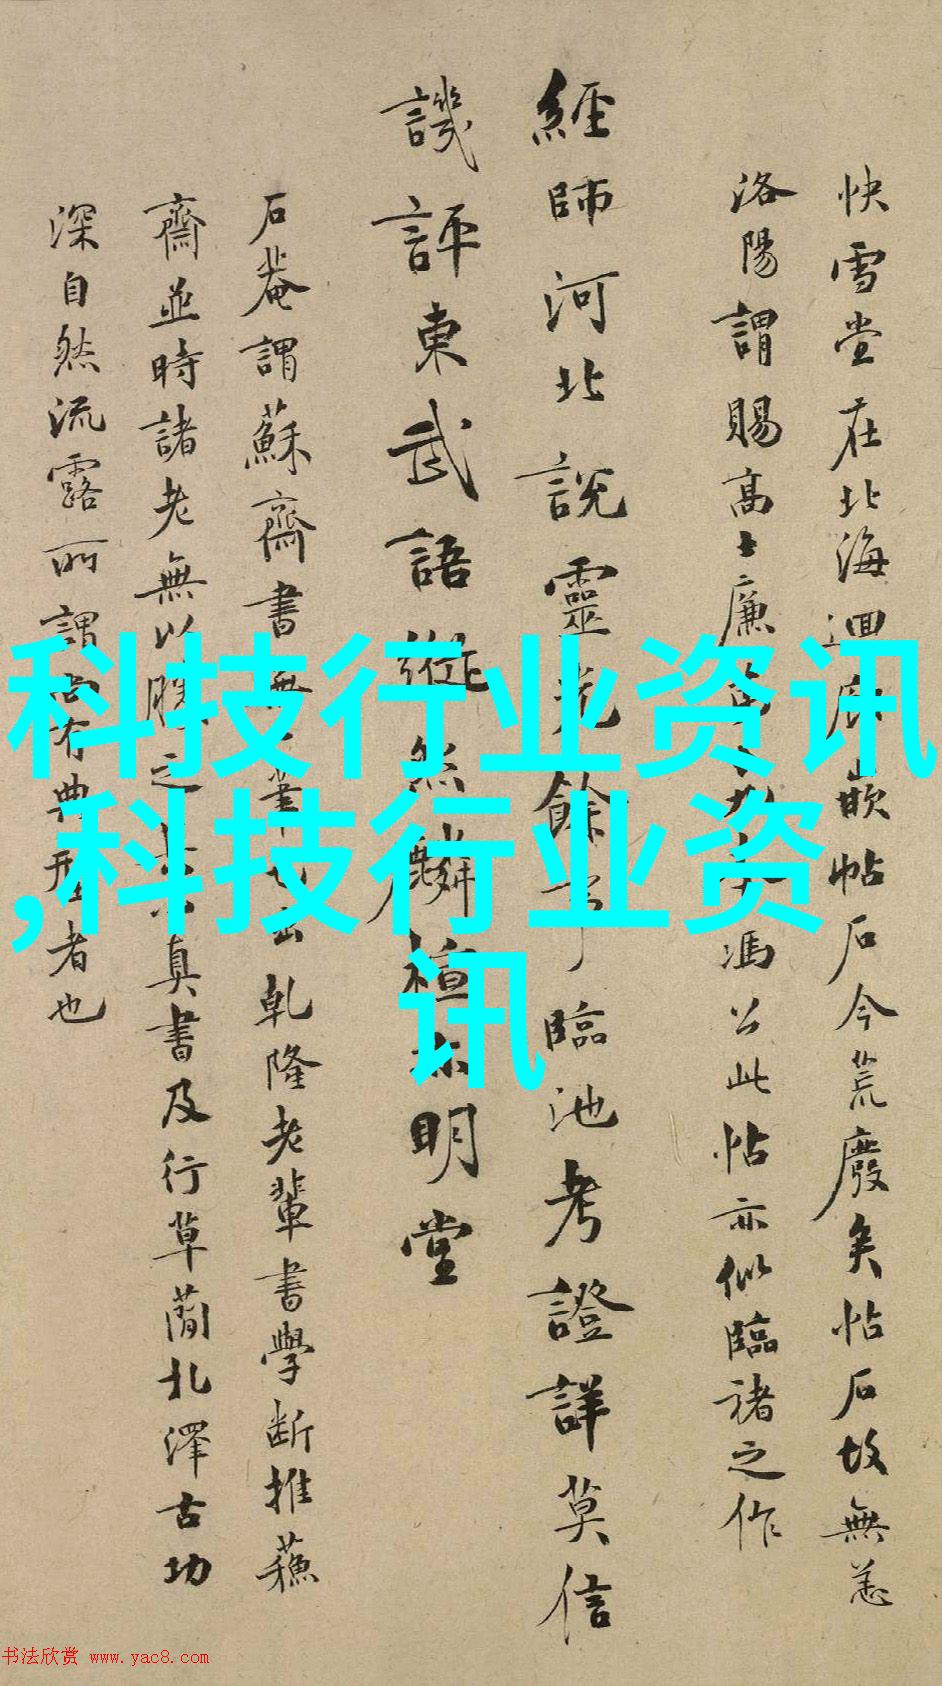 快雪堂在北海迴廊嵌帖石今荒廢矣帖石故無恙
洛陽謂賜高士廉馮公此帖亦似臨諸之作
經師河北說靈光餘事臨池考證詳莫信
譏評東武語縱然麟楦亦明堂
石菴謂蘇齋書無筆乾隆老輩書學斷推蘇
齋並時諸老無以勝之真書及行草蘭北澤古功
深自然流露所謂尚有典型者也
科技行业资讯
,科技行业资
讯
书法欣赏 www.yac8.com